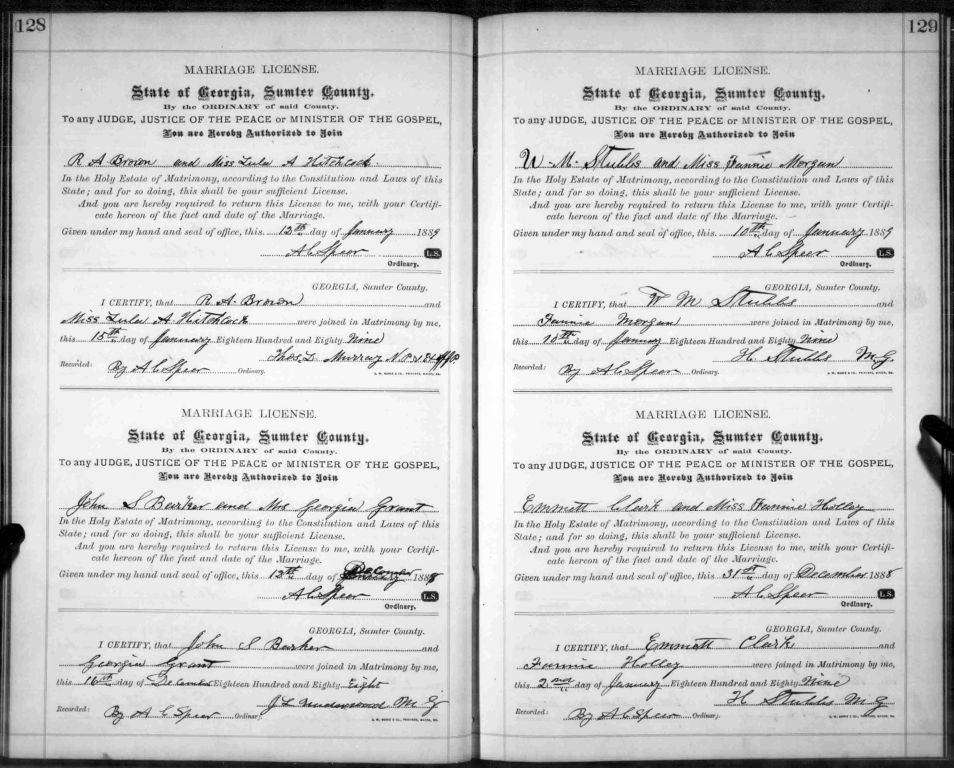 128
MARRIAGE LICENSE.
State of Georgia, Sumter County.
By the ORDINARY of said County.
To any JUDGE, JUSTICE OF THE PEACE or MINISTER OF THE GOSPEL,
You are Hereby Authorized to Join
R A Brown and Miss Lula A Hitchcock
In the Holy Estate of Matrimony, according to the Constitution and Laws of this
State; and for so doing, this shall be your sufficient License.
And you are hereby required to return this License to me, with your Certifi-
cate hereon of the fact and date of the Marriage.
Given under my hand and seal of office, this 12th day of January 1889
A C Speer L.S.
Ordinary.
GEORGIA, Sumter County.
I CERTIFY, that R. A. Brown and
Miss Lula A Hitchcock were joined in Matrimony by me,
this 15th day of January Eighteen Hundred and Eighty Nine
Thos. L. Murray N.P.
Recorded: By A C Speer Ordinary.
MARRIAGE LICENSE.
State of Georgia, Sumter County.
By the ORDINARY of said County.
To any JUDGE, JUSTICE OF THE PEACE or MINISTER OF THE GOSPEL,
You are Hereby Authorized to Join
John S Barker and Mrs Georgia Grant
In the Holy Estate of Matrimony, according to the Constitution and Laws of this
State; and for so doing, this shall be your sufficient License.
And you are hereby required to return this License to me, with your Certifi-
cate hereon of the fact and date of the Marriage.
Given under my hand and seal of office, this 13th day of December 1888
A C Speer L.S.
Ordinary.
GEORGIA, Sumter County.
I CERTIFY, that John S Barker and
Georgia Grant were joined in Matrimony by me,
this 16th day of December Eighteen Hundred and Eighty Eight
J L Underwood M G
Recorded: By A C Speer Ordinary.
129
MARRIAGE LICENSE.
State of Georgia, Sumter County.
By the ORDINARY of said County.
To any JUDGE, JUSTICE OF THE PEACE or MINISTER OF THE GOSPEL,
You are Hereby Authorized to Join
W. M. Stubbs and Miss Fannie Morgan
In the Holy Estate of Matrimony, according to the Constitution and Laws of this
State; and for so doing, this shall be your sufficient License.
And you are hereby required to return this License to me, with your Certifi-
cate hereon of the fact and date of the Marriage.
Given under my hand and seal of office, this 10th day of January 1889
A C Speer L.S.
Ordinary.
GEORGIA, Sumter County.
I CERTIFY, that W M Stubbs and
Fannie Morgan were joined in Matrimony by me,
this 10th day of January Eighteen Hundred and Eighty Nine
H Stubbs M.G.
Recorded: By A C Speer Ordinary.
MARRIAGE LICENSE.
State of Georgia, Sumter County.
By the ORDINARY of said County.
To any JUDGE, JUSTICE OF THE PEACE or MINISTER OF THE GOSPEL,
You are Hereby Authorized to Join
Emmott Clark and Miss Fannie Holley
In the Holy Estate of Matrimony, according to the Constitution and Laws of this
State; and for so doing, this shall be your sufficient License.
And you are hereby required to return this License to me, with your Certifi-
cate hereon of the fact and date of the Marriage.
Given under my hand and seal of office, this 31st day of December 1888
A C Speer L.S.
Ordinary.
GEORGIA, Sumter County.
I CERTIFY, that Emmott Clark and
Fannie Holley were joined in Matrimony by me,
this 2nd day of January Eighteen Hundred and Eighty Nine
H Stubbs M G
Recorded: By A C Speer Ordinary.